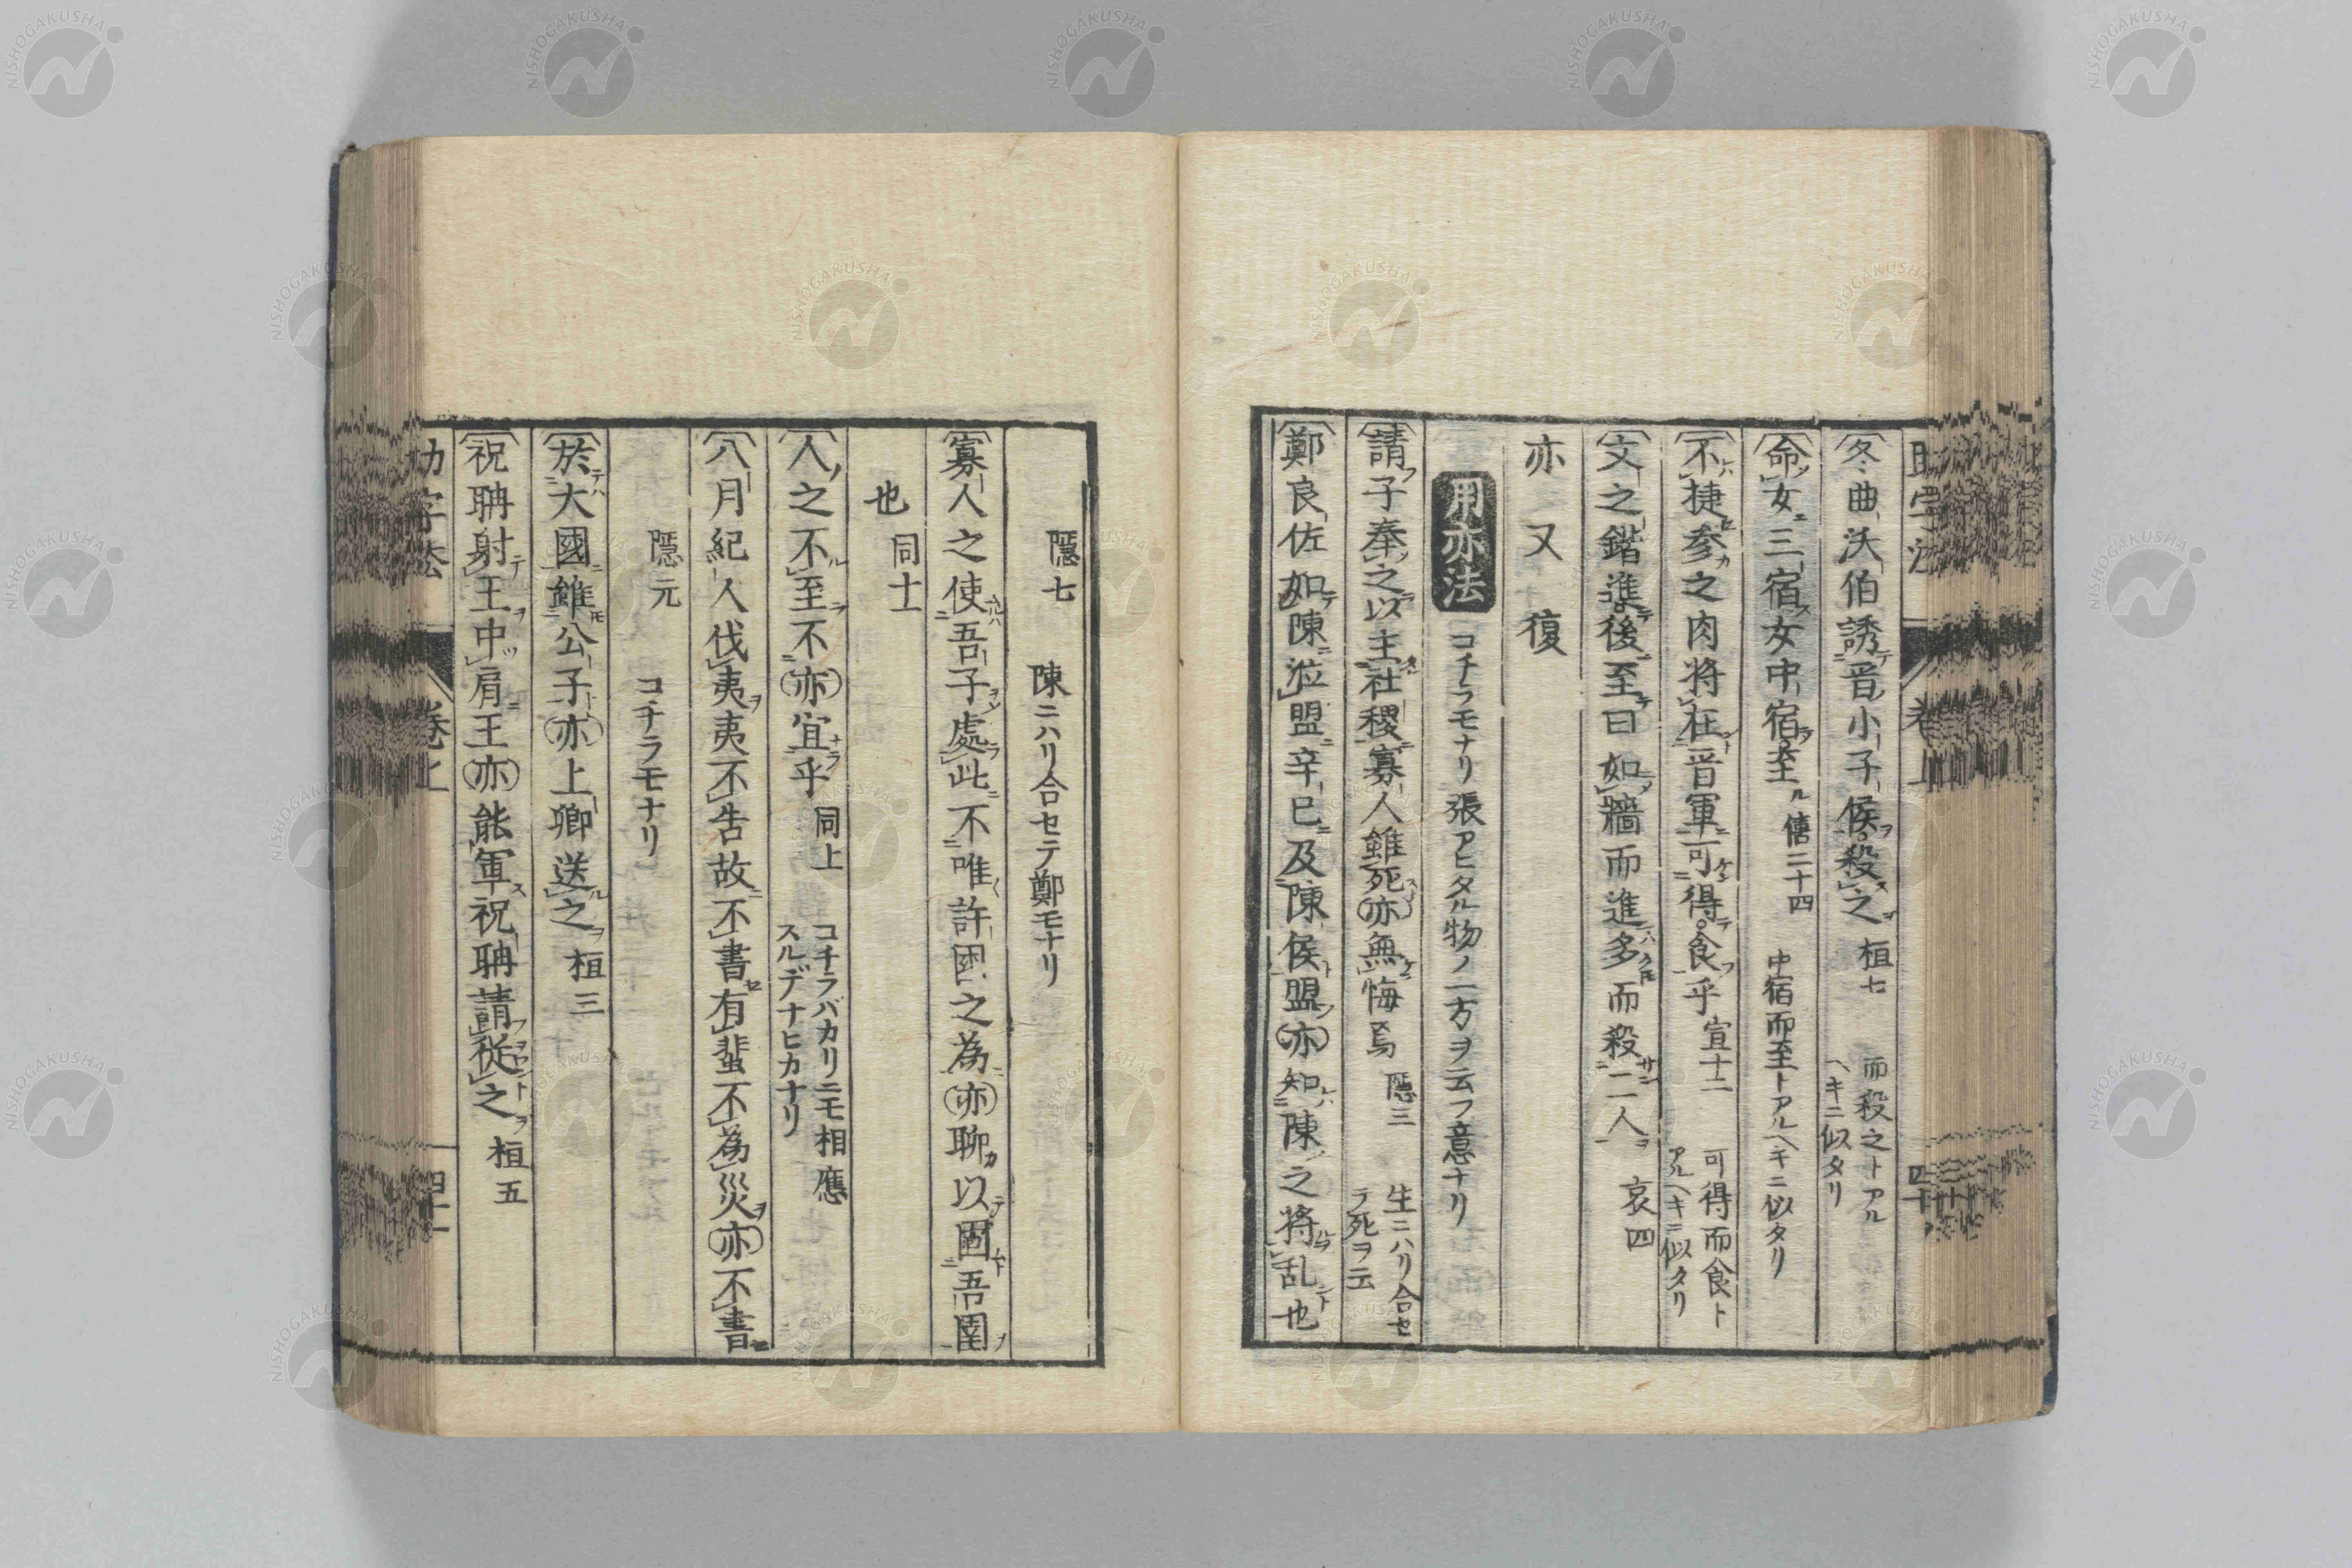 冬曲沃伯誘晋小子侯殺之 桓七 而殺之トアルヘキニ似タリ
命女三宿女中宿至 僖二十四 中宿而至トアルヘキニ似タリ
不捷参之肉将在晋軍可得食乎 宣十二 可得而食トアルヘキニ似タリ
文之鍇進後至曰如牆而進多而殺二人 哀四
亦 又 復
用亦法 コチラモナリ張アヒタル物ノ一方ヲ云フ意ナリ
請子奉之以主社稷寡人雖死亦無悔焉 隠三 生ニハリ合セテ死ヲ云
鄭良佐如陳涖盟辛巳及陳侯盟亦知陳之将乱也
隠七 陳ニハリ合セテ鄭モナリ
寡人之使吾子處此不唯許國之為亦聊以固吾圉
也 同十一
人之不至不亦宜乎 同上 コチラバカリニモ相應スルデナヒカナリ
八月紀人伐夷夷不告故不書有蜚不為災亦不書
隠元 コチラモナリ
於大國雖公子亦上卿送之 桓三
祝聃射王中肩王亦能軍祝聃請従之 桓五
NISHOGAKUSHA